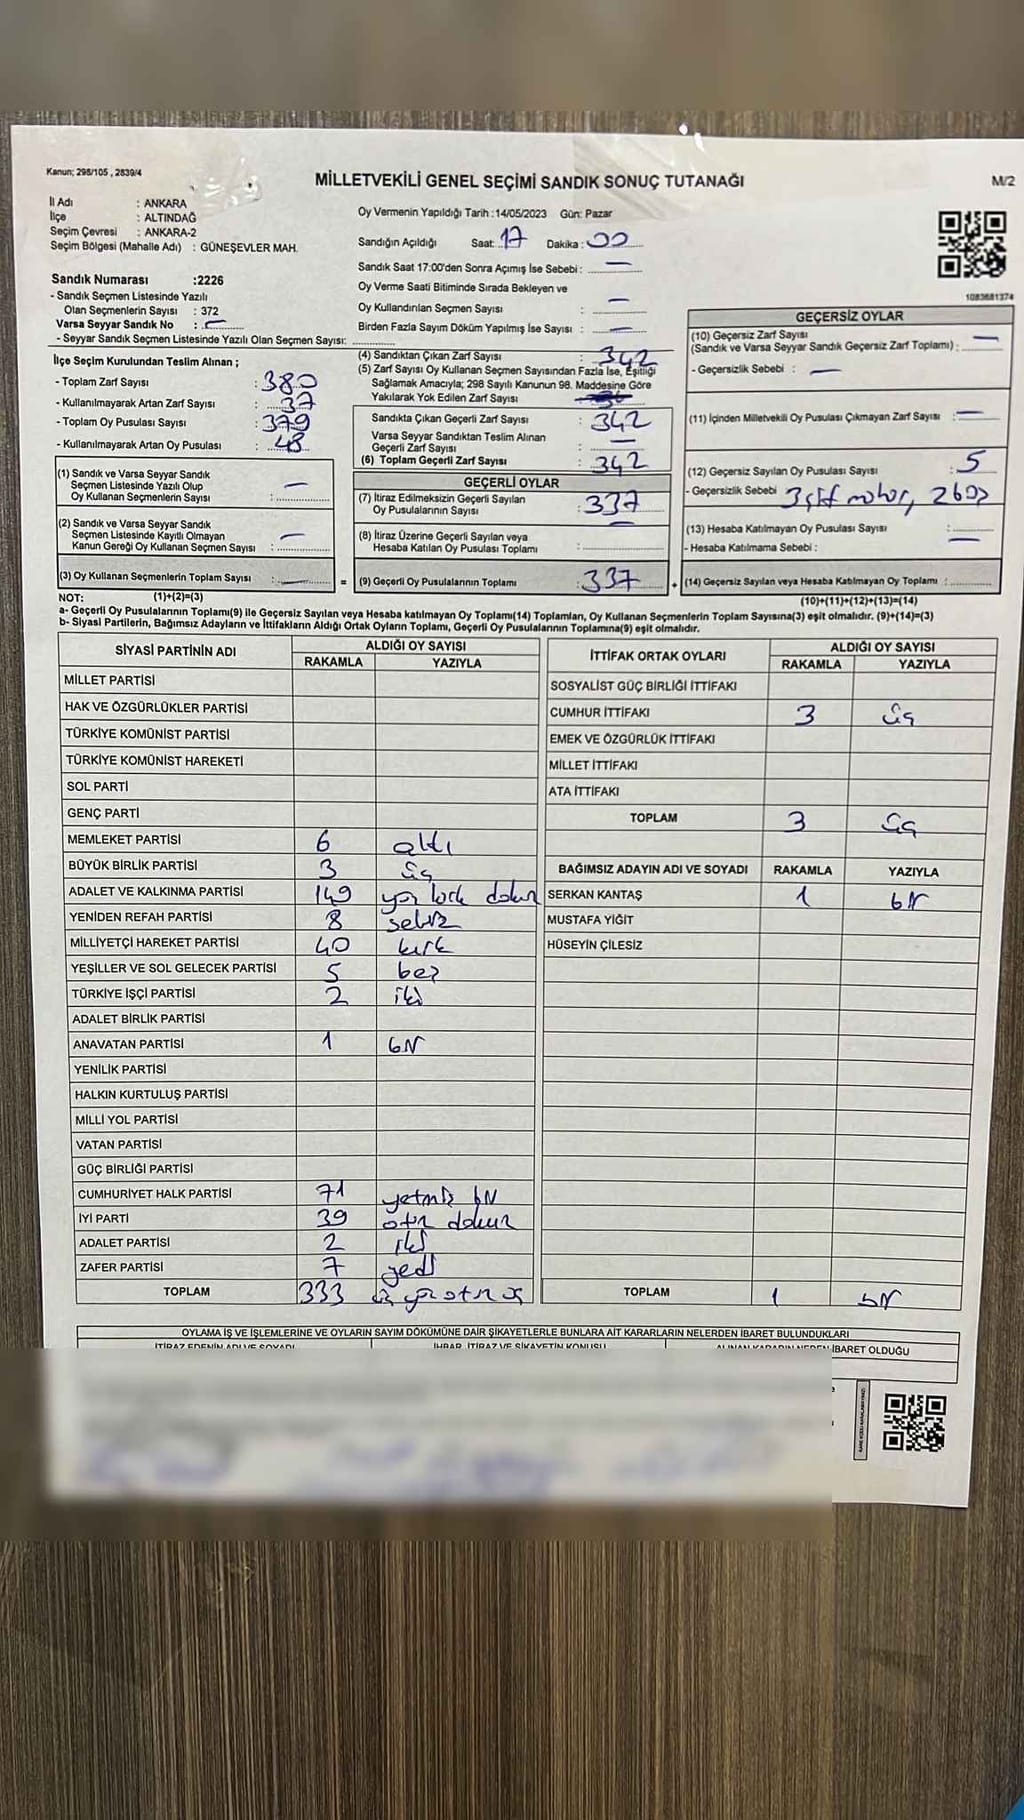 Kanun; 298/105 , 2839/4
MİLLETVEKİLİ GENEL SEÇİMİ SANDIK SONUÇ TUTANAĞI
M/2
İl Adı : ANKARA
İlçe : ALTINDAĞ
Seçim Çevresi : ANKARA-2
Seçim Bölgesi (Mahalle Adı) : GÜNEŞEVLER MAH.
Sandık Numarası :2226
- Sandık Seçmen Listesinde Yazılı
Olan Seçmenlerin Sayısı : 372
Varsa Seyyar Sandık No : –
- Seyyar Sandık Seçmen Listesinde Yazılı Olan Seçmen Sayısı:
Oy Vermenin Yapıldığı Tarih :14/05/2023 Gün: Pazar
Sandığın Açıldığı Saat: 17 Dakika : 00
Sandık Saat 17:00'den Sonra Açımış İse Sebebi : –
Oy Verme Saati Bitiminde Sırada Bekleyen ve
Oy Kullandırılan Seçmen Sayısı : –
Birden Fazla Sayım Döküm Yapılmış İse Sayısı : –
1083681374
İlçe Seçim Kurulundan Teslim Alınan ;
- Toplam Zarf Sayısı : 380
- Kullanılmayarak Artan Zarf Sayısı : 37
- Toplam Oy Pusulası Sayısı : 379
- Kullanılmayarak Artan Oy Pusulası : 48
(1) Sandık ve Varsa Seyyar Sandık
Seçmen Listesinde Yazılı Olup
Oy Kullanan Seçmenlerin Sayısı : –
(2) Sandık ve Varsa Seyyar Sandık
Seçmen Listesinde Kayıtlı Olmayan
Kanun Gereği Oy Kullanan Seçmen Sayısı : –
(3) Oy Kullanan Seçmenlerin Toplam Sayısı : – =
(4) Sandıktan Çıkan Zarf Sayısı : 342
(5) Zarf Sayısı Oy Kullanan Seçmen Sayısından Fazla İse, Eşitliği
Sağlamak Amacıyla; 298 Sayılı Kanunun 98. Maddesine Göre
Yakılarak Yok Edilen Zarf Sayısı
Sandıkta Çıkan Geçerli Zarf Sayısı : 342
Varsa Seyyar Sandıktan Teslim Alınan
Geçerli Zarf Sayısı : –
(6) Toplam Geçerli Zarf Sayısı : 342
GEÇERLİ OYLAR
(7) İtiraz Edilmeksizin Geçerli Sayılan
Oy Pusulalarının Sayısı : 337
(8) İtiraz Üzerine Geçerli Sayılan veya
Hesaba Katılan Oy Pusulası Toplamı : –
(9) Geçerli Oy Pusulalarının Toplamı : 337 +
GEÇERSİZ OYLAR
(10) Geçersiz Zarf Sayısı
(Sandık ve Varsa Seyyar Sandık Geçersiz Zarf Toplamı) : –
- Geçersizlik Sebebi : –
(11) İçinden Milletvekili Oy Pusulası Çıkmayan Zarf Sayısı : –
(12) Geçersiz Sayılan Oy Pusulası Sayısı : 5
- Geçersizlik Sebebi 3 çift mühür, 2 boş
(13) Hesaba Katılmayan Oy Pusulası Sayısı : –
- Hesaba Katılmama Sebebi :
(14) Geçersiz Sayılan veya Hesaba Katılmayan Oy Toplamı :
NOT: (1)+(2)=(3)
(10)+(11)+(12)+(13)=(14)
a- Geçerli Oy Pusulalarının Toplamı(9) ile Geçersiz Sayılan veya Hesaba katılmayan Oy Toplamı(14) Toplamları, Oy Kullanan Seçmenlerin Toplam Sayısına(3) eşit olmalıdır. (9)+(14)=(3)
b- Siyasi Partilerin, Bağımsız Adayların ve İttifakların Aldığı Ortak Oyların Toplamı, Geçerli Oy Pusulalarının Toplamına(9) eşit olmalıdır.
SİYASİ PARTİNİN ADI ALDIĞI OY SAYISI
RAKAMLA YAZIYLA
MİLLET PARTİSİ
HAK VE ÖZGÜRLÜKLER PARTİSİ
TÜRKİYE KOMÜNİST PARTİSİ
TÜRKİYE KOMÜNİST HAREKETİ
SOL PARTİ
GENÇ PARTİ
MEMLEKET PARTİSİ 6 altı
BÜYÜK BİRLİK PARTİSİ 3 üç
ADALET VE KALKINMA PARTİSİ 149 yüz kırk dokuz
YENİDEN REFAH PARTİSİ 8 sekiz
MİLLİYETÇİ HAREKET PARTİSİ 40 kırk
YEŞİLLER VE SOL GELECEK PARTİSİ 5 beş
TÜRKİYE İŞÇİ PARTİSİ 2 iki
ADALET BİRLİK PARTİSİ
ANAVATAN PARTİSİ 1 bir
YENİLİK PARTİSİ
HALKIN KURTULUŞ PARTİSİ
MİLLİ YOL PARTİSİ
VATAN PARTİSİ
GÜÇ BİRLİĞİ PARTİSİ
CUMHURİYET HALK PARTİSİ 71 yetmiş bir
İYİ PARTİ 39 otuz dokuz
ADALET PARTİSİ 2 iki
ZAFER PARTİSİ 7 yedi
TOPLAM 333 üç yüz otuz üç
İTTİFAK ORTAK OYLARI ALDIĞI OY SAYISI
RAKAMLA YAZIYLA
SOSYALİST GÜÇ BİRLİĞİ İTTİFAKI
CUMHUR İTTİFAKI 3 üç
EMEK VE ÖZGÜRLÜK İTTİFAKI
MİLLET İTTİFAKI
ATA İTTİFAKI
TOPLAM 3 üç
BAĞIMSIZ ADAYIN ADI VE SOYADI RAKAMLA YAZIYLA
SERKAN KANTAŞ 1 bir
MUSTAFA YİĞİT
HÜSEYİN ÇİLESİZ
TOPLAM 1 bir
OYLAMA İŞ VE İŞLEMLERİNE VE OYLARIN SAYIM DÖKÜMÜNE DAİR ŞİKAYETLERLE BUNLARA AİT KARARLARIN NELERDEN İBARET BULUNDUKLARI
İTİRAZ EDENİN ADI VE SOYADI İHBAR, İTİRAZ VE ŞİKAYETİN KONUSU ALINAN KARARIN NEDEN İBARET OLDUĞU